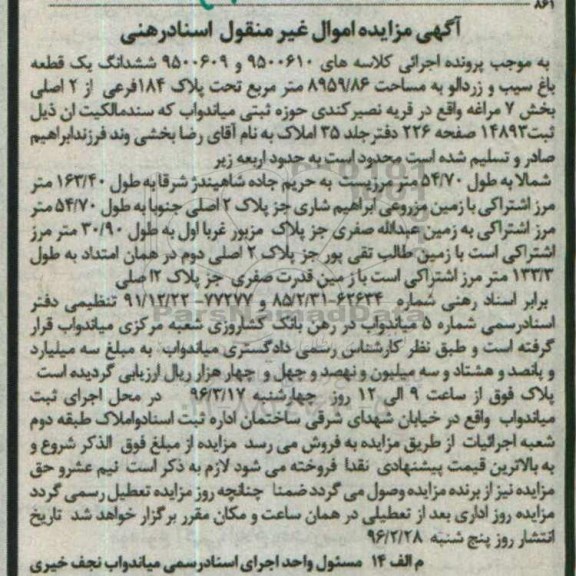 ۸۶۱
آگهی مزایده اموال غیر منقول اسناد رهنی
به موجب پرونده اجرائی کلاسه های ۹۵۰۰۶۱۰ و ۹۵۰۰۶۰۹ ششدانگ یک قطعه
باغ سیب و زردالو به مساحت ۸۹۵۹/۸۶ متر مربع تحت پلاک ۱۸۴فرعی از ۲ اصلی
بخش ۷ مراغه واقع در قریه نصیرکندی حوزه ثبتی میاندواب که سندمالکیت ان ذیل
ثبت۱۴۸۹۳ صفحه ۲۲۶ دفترجلد ۳۵ املاک به نام آقای رضا بخشی وند فرزندابراهیم
صادر و تسلیم شده است محدود است به حدود اربعه زیر
شمالا به طول ۵۴/۷۰ متر مرزیست به حریم جاده شاهیندژ شرقا به طول ۱۶۳/۴۰ متر
مرز اشتراکی با زمین مزروعی ابراهیم شاری جز پلاک ۲ اصلی جنوبا به طول ۵۴/۷۰ متر
مرز اشتراکی به زمین عبدالله صفری جز پلاک مزبور غربا اول به طول ۳۰/۹۰ متر مرز
اشتراکی است با زمین طالب تقی پور جز پلاک ۲ اصلی دوم در همان امتداد به طول
۱۳۳/۳ متر مرز اشتراکی است با زمین قدرت صفری جز پلاک ۲ا صلی
برابر اسناد رهنی شماره ۶۲۶۳۴-۸۵/۲/۳۱ و ۷۷۲۷۷-۹۱/۱۲/۲۲ تنظیمی دفتر
اسنادرسمی شماره ۵ میاندواب در رهن بانک کشاورزی شعبه مرکزی میاندواب قرار
گرفته است و طبق نظر کارشناس رسمی دادگستری میاندواب به مبلغ سه میلیارد
و پانصد و هشتاد و سه میلیون و نهصد و چهل و چهار هزار ریال ارزیابی گردیده است
پلاک فوق از ساعت ۹ الی ۱۲ روز چهارشنبه ۹۶/۳/۱۷ در محل اجرای ثبت
میاندواب واقع در خیابان شهدای شرقی ساختمان اداره ثبت اسنادواملاک طبقه دوم
شعبه اجرائیات از طریق مزایده به فروش می رسد مزایده از مبلغ فوق الذکر شروع و
به بالاترین قیمت پیشنهادی نقدا فروخته می شود لازم به ذکر است نیم عشرو حق
مزایده نیز از برنده مزایده وصول می گردد ضمنا چنانچه روز مزایده تعطیل رسمی گردد
مزایده روز اداری بعد از تعطیلی در همان ساعت و مکان مقرر برگزار خواهد شد تاریخ
انتشار روز پنج شنبه ۹۶/۲/۲۸
م الف ۱۴ مسئول واحد اجرای اسنادرسمی میاندواب نجف خیری
ParsNamadData